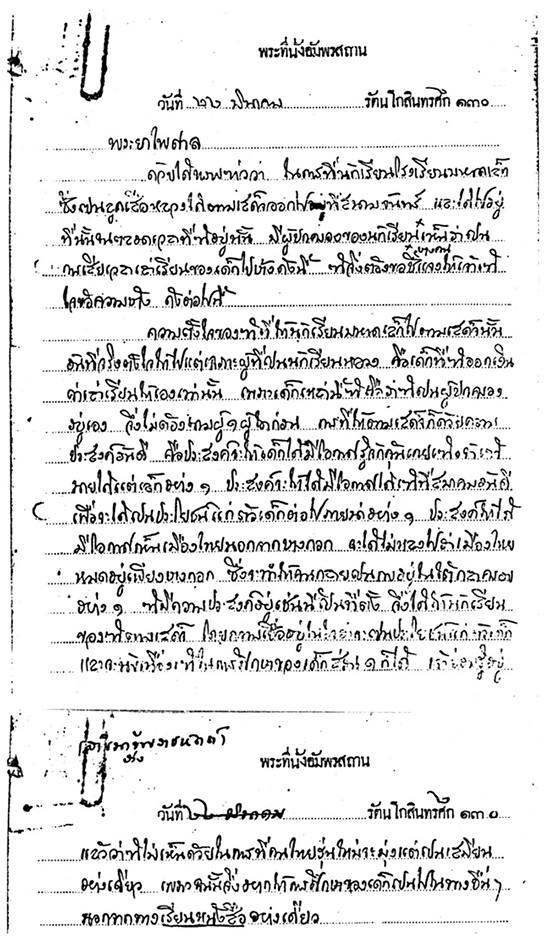 พระที่นั่งอัมพรสถาน
วันที่ ๒๒ มีนาคม รัตนโกสินทรศก ๑๓๐
พระยาไพศาล
ด้วยได้ทราบข่าวว่า ในการที่นักเรียนโรงเรียนมหาดเล็ก
ซึ่งเป็นลูกเสือหลวงได้ตามเสด็จออกไปที่สนามจันทร์ และได้ไปอยู่
ที่นั้นตลอดเวลาที่ข้าอยู่นั้น มีผู้ปกครองของนักเรียนบางคนเห็นว่าเป็น
การเสียเวลาเล่าเรียนของเด็กไปบ้างดังนี้ ข้าจึงต้องขอชี้แจงให้เจ้าเข้า
ใจข้อความทั้ง ดังต่อไปนี้
ความตั้งใจของข้าที่ให้นักเรียนมหาดเล็กไปตามเสด็จนั้น
อันที่จริงตั้งใจให้ไปแต่เฉพาะผู้ที่เป็นนักเรียนหลวง คือเด็กที่ข้าออกเงิน
ค่าเล่าเรียนให้เองเท่านั้น เพราะเด็กเหล่านี้ข้าถือว่าข้าเป็นผู้ปกครอง
อยู่เอง จึงไม่ต้องถามผู้ ๑ ผู้ใดก่อน การที่ให้ตามเสด็จก็ด้วยความ
ประสงค์อันดี คือประสงค์จะให้เด็กได้มีโอกาสรู้จักคุ้นเคยเจ้าตัวเข้า
ภายใต้แต่เล็กอย่าง ๑ ประสงค์จะให้ได้มีโอกาสได้เข้าที่สมาคมอันดี
เพื่อจะได้เป็นประโยชน์แก่ตัวเด็กต่อไปภายหน้าอย่าง ๑ ประสงค์ให้ได้
มีโอกาสเห็นเมืองไทยนอกจากบางกอก จะได้ไม่หลงไปว่าเมืองไทย
หมดอยู่เพียงบางกอก ซึ่งจะทำให้คนกลายเป็นกบอยู่ในใต้กะลาครอบ
อย่าง ๑ ข้ามีความประสงค์อยู่เช่นนี้เป็นที่ตั้ง จึงได้ให้นักเรียน
ของข้าตามเสด็จ โดยความเชื่ออยู่ในใจว่าจะเป็นประโยชน์แก่ตัวเด็ก
และจะนับเนื่องเข้าในการศึกษาของเด็กส่วน ๑ ก็ได้ เจ้าย่อมรู้อยู่
พระที่นั่งอัมพรสถาน
วันที่ ๒๒ มีนาคม รัตนโกสินทรศก ๑๓๐
แล้วว่าข้าไม่เห็นด้วยในการที่คนไทยรุ่นใหม่จะมุ่งแต่เป็นเสมียน
อย่างเดียว เพราะฉะนั้นจึ่งอยากให้การศึกษาของเด็กเป็นไปในทางอื่น ๆ
นอกจากทางเรียนหนังสืออย่างเดียว